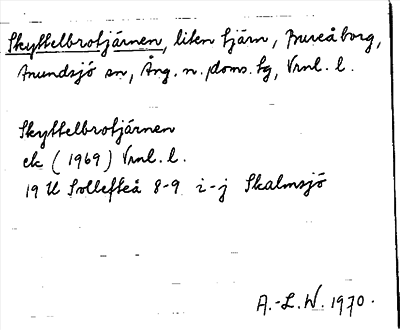 Skyttelbrotjärnen, liten tjärn, Bureåborg,
Anundsjö sn, Ång. n. doms. tg, Vrnl. l.
Skyttelbrotjärnen
ek (1969) Vrnl. l.
19 H Sollefteå 8-9 i-j Skalmsjö
A.-L.W. 1970.